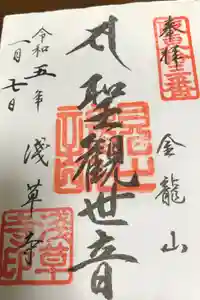 奉拝
金龍山
聖觀世音
淺草寺
令和五年
一月七日
淺草寺印